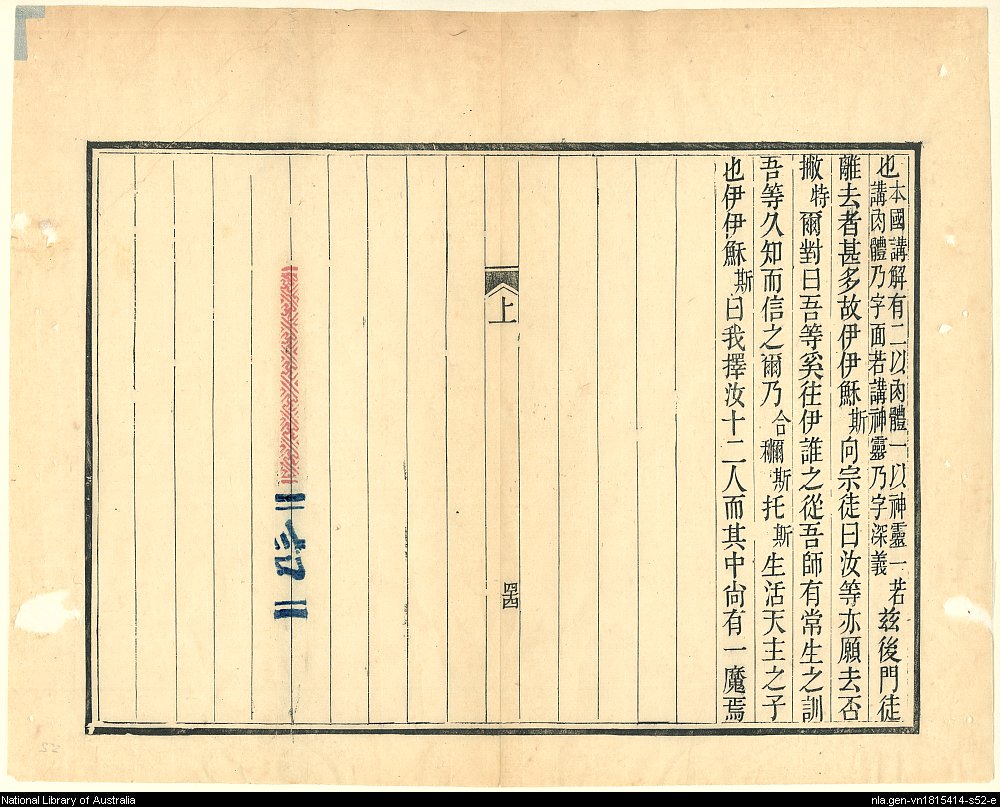 也本國講解有二以肉體一以神靈一若
講肉體乃字面若講神靈乃字深義茲後門徒
離去者甚多故伊伊穌斯向宗徒曰汝等亦願去否
撇特爾對曰吾等奚往伊誰之從吾師有常生之訓
吾等久知而信之爾乃合穪斯托斯生活天主之子
也伊伊穌斯曰我擇汝十二人而其中尚有一魔焉
上
四四
National Library of Australia
nla.gen-vn1815414-s52-e